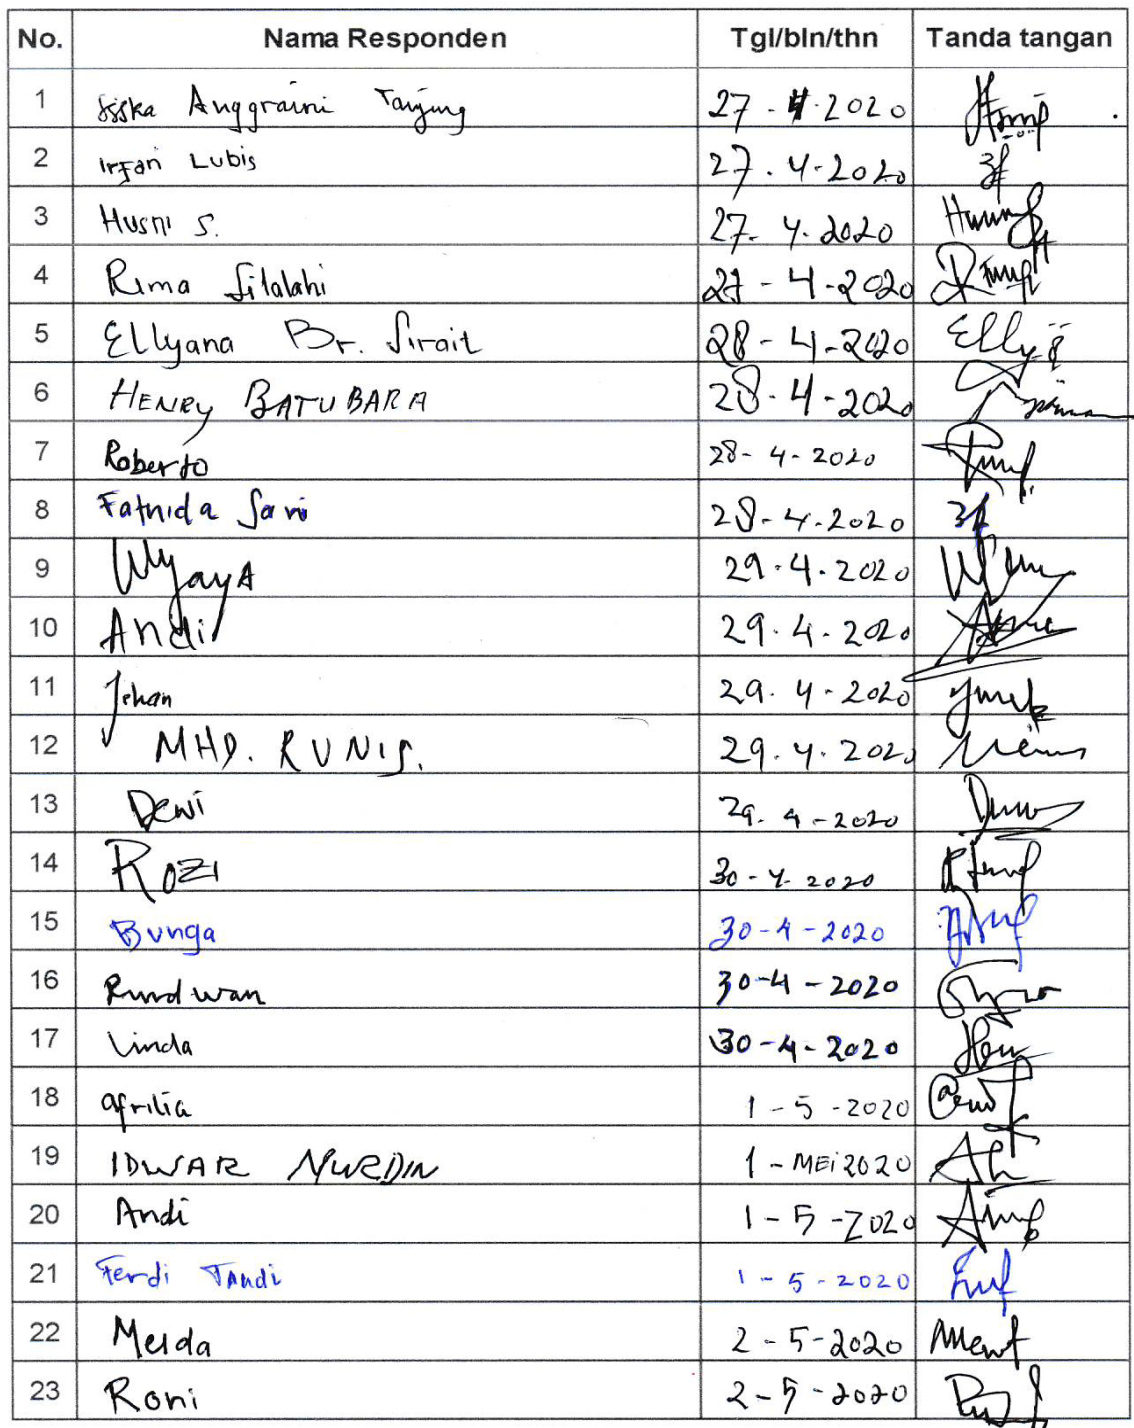 No. Nama Responden Tgl/bln/thn Tanda tangan
1 Siska Anggraini Tanjung 27 - 4 - 2020
2 Irfan Lubis 27 . 4 - 2020
3 Husni S. 27 - 4 - 2020
4 Rima Silalahi 27 - 4 - 2020
5 Ellyana Br. Sirait 28 - 4 - 2020 Elly
6 HENRY BATUBARA 28 - 4 - 2020
7 Roberto 28 - 4 - 2020
8 Fatnida Sari 28 - 4 - 2020
9 WijayA 29 . 4 . 2020
10 Andi 29 . 4 . 2020
11 Jehan 29 . 4 - 2020
12 MHD. RUNIS. 29 . 4 . 2020
13 Dewi 29 . 4 - 2020
14 ROZI 30 - 4 - 2020
15 Bunga 30 - 4 - 2020
16 30 - 4 - 2020
17 Linda 30 - 4 - 2020
18 afrilia 1 - 5 - 2020
19 IDWAR NURDIN 1 - MEi 2020
20 Andi 1 - 5 - 2020
21 Ferdi TAndi 1 - 5 - 2020
22 Meida 2 - 5 - 2020
23 Roni 2 - 5 - 2020